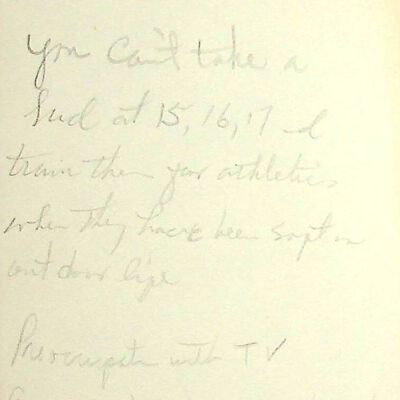 You can't take a
kid at 15, 16, 17 &
train them for athletics
when they have been soft on
out door life
Preoccupation with TV